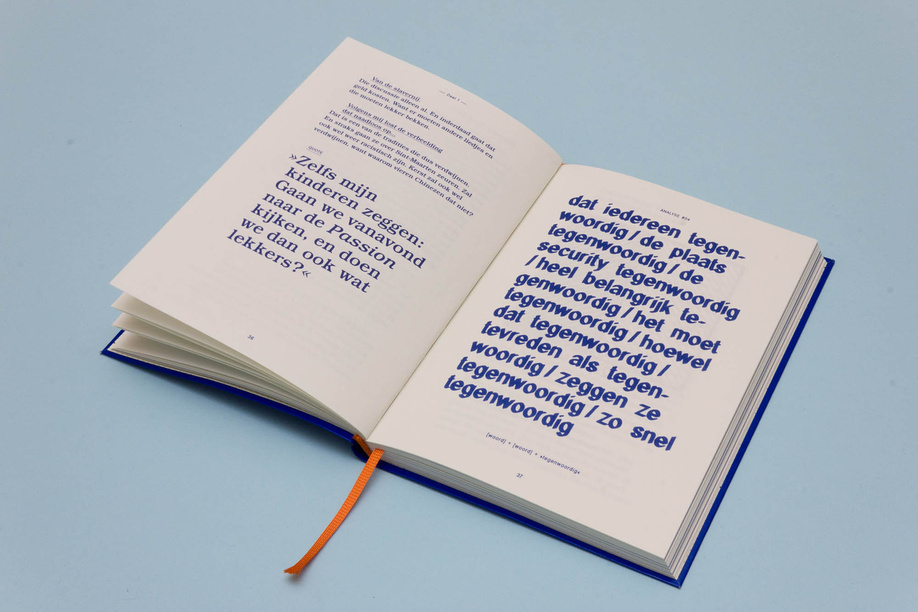 — Deel 1 —
Van de slavernij.
Die discussie alleen al. En inderdaad gaat dat
geld kosten. Want er moeten andere liedjes en
die moeten lekker bekken.
Volgens mij lost de verbeelding
dat naadloos op...
Dat is een van de tradities die dus verdwijnen.
En straks gaan ze over Sint-Maarten zeuren. Zal
ook wel weer racistisch zijn. Kerst zal ook wel
verdwijnen, want waarom vieren Chinezen dat niet?
QUOTE
»Zelfs mijn
kinderen zeggen:
Gaan we vanavond
naar de Passion
kijken, en doen
we dan ook wat
lekkers?«
36
ANALYSE BOX
dat iedereen tegen-
woordig / de plaats
tegenwoordig / de
security tegenwoordig
/ heel belangrijk te-
genwoordig / het moet
tegenwoordig / hoewel
dat tegenwoordig /
tevreden als tegen-
woordig / zeggen ze
tegenwoordig / zo snel
tegenwoordig
[woord] + [woord] + »tegenwoordig«
37